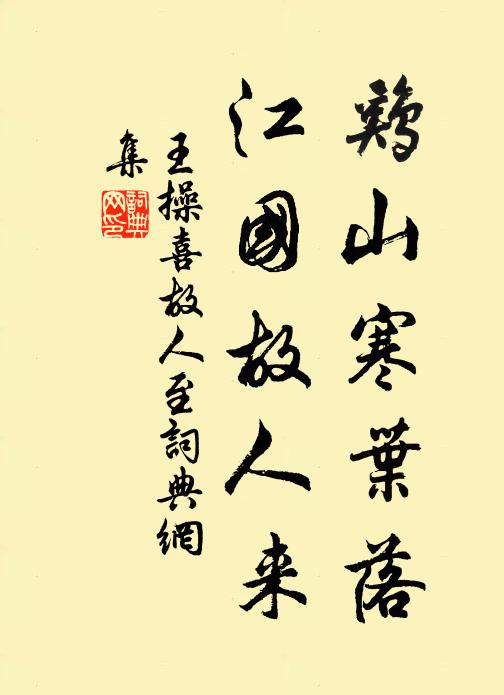 鷄山寒葉落
江國故人来
王操喜故人至詞典網
集
詞典
网印